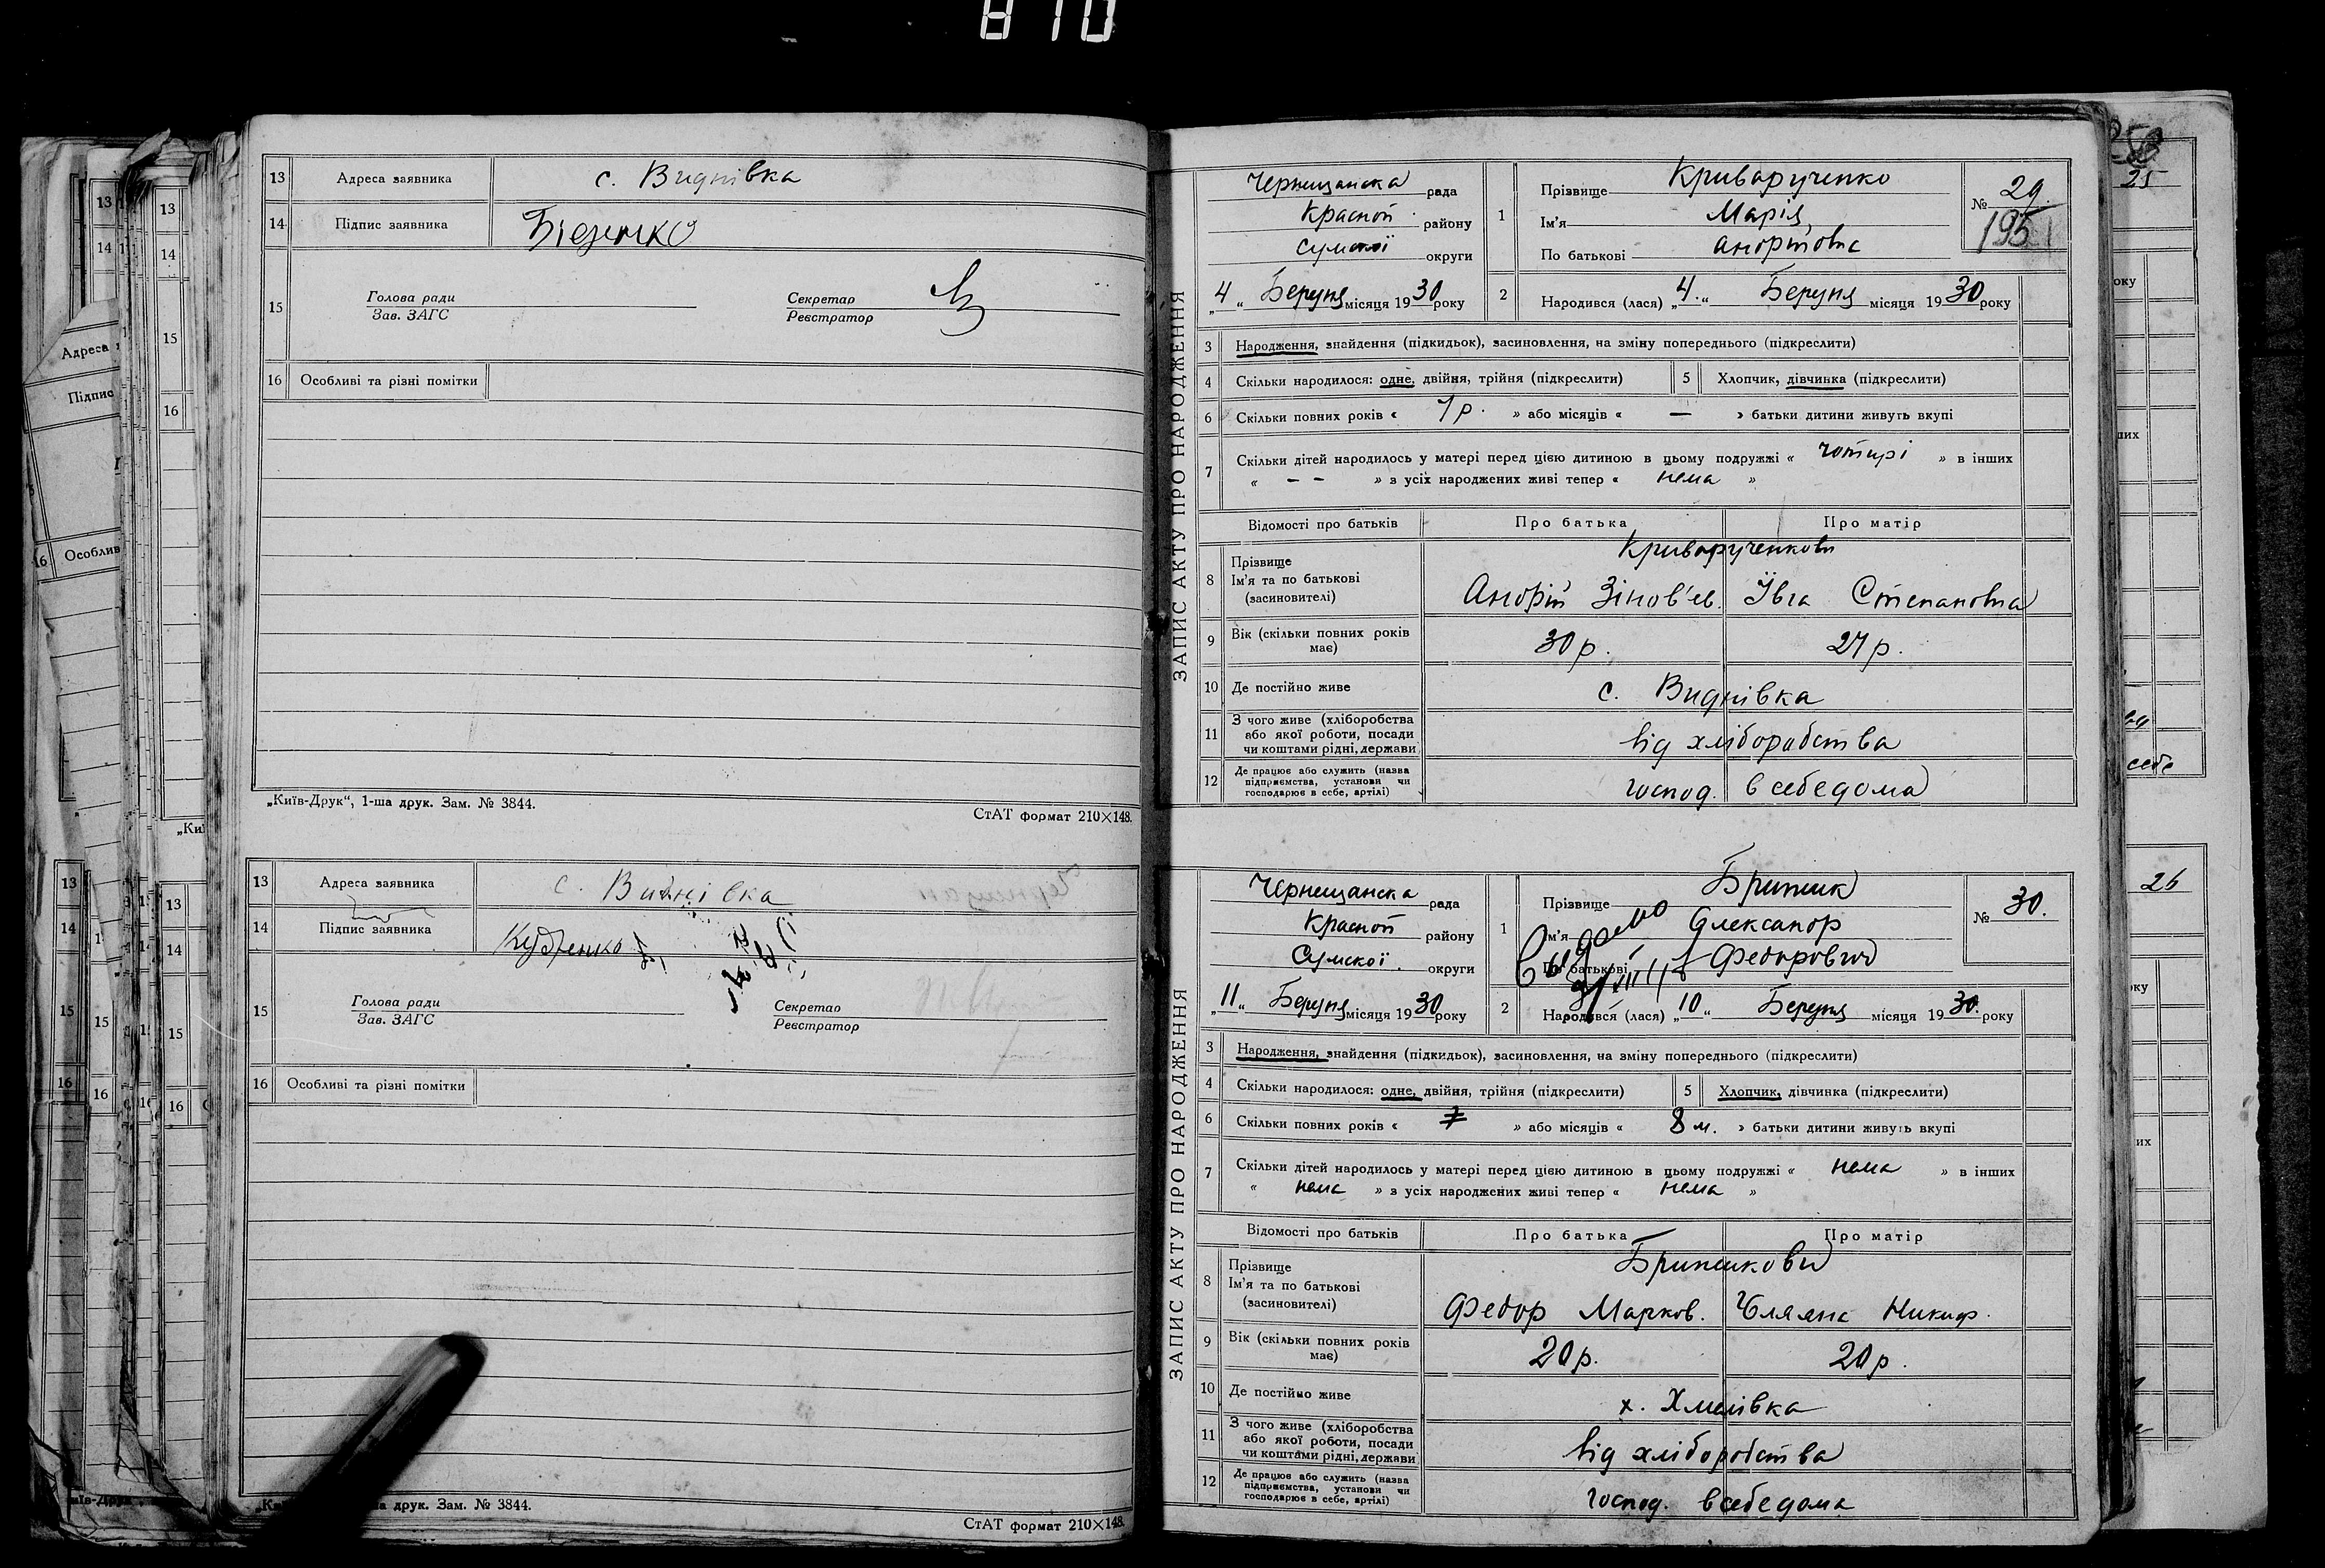 810
13 Адреса заявника с. Виднівка
14 Підпис заявника
15 Голова ради
Зав. ЗАГС
Секретар
Реєстратор
16 Особливі та різні помітки
„Київ-Друк“, 1-ша друк. Зам. № 3844.
СтАТ формат 210×148.
13 Адреса заявника с. Виднівка
14 Підпис заявника
15 Голова ради
Зав. ЗАГС
Секретар
Реєстратор
16 Особливі та різні помітки
друк. Зам. № 3844.
СтАТ формат 210×148.
ЗАПИС АКТУ ПРО НАРОДЖЕННЯ
Чернещанска рада
Красноп. району
Сумскої округи
„4“ Березня місяця 1930 року
1 Прізвище Криварученко
Ім'я Марія
По батькові Андріївна
№ 29.
195
2 Народився (лася) „4.“ Березня місяця 1930 року
3 Народження, знайдення (підкидьок), засиновлення, на зміну попереднього (підкреслити)
4 Скільки народилося: одне, двійня, трійня (підкреслити)
5 Хлопчик, дівчинка (підкреслити)
6 Скільки повних років « р. » або місяців « — » батьки дитини живуть вкупі
7 Скільки дітей народилось у матері перед цією дитиною в цьому подружжі « чотирі » в інших
« - - » з усіх народжених живі тепер « нема »
Відомості про батьків Про батька Про матір
8 Прізвище
Ім'я та по батькові
(засиновителі)
Криварученкови
Андрій Зінов'єв. Ївга Степановна
9 Вік (скільки повних років має) 30 р. 27 р.
10 Де постійно живе с. Виднівка
11 З чого живе (хліборобства
або якої роботи, посади
чи коштами рідні, держави
від хліборобства
12 Де працює або служить (назва
підприємства, установи чи
господарює в себе, артілі)
господ. в себе дома
ЗАПИС АКТУ ПРО НАРОДЖЕННЯ
Чернещанска рада
Красноп. району
Сумскої. округи
„11“ Березня місяця 1930 року
1 Прізвище
Ім'я Олександр
По батькові Федорович
№ 30.
2 Народився (лася) „10“ Березня місяця 1930. року
3 Народження, знайдення (підкидьок), засиновлення, на зміну попереднього (підкреслити)
4 Скільки народилося: одне, двійня, трійня (підкреслити)
5 Хлопчик, дівчинка (підкреслити)
6 Скільки повних років « » або місяців « 8 м. » батьки дитини живуть вкупі
7 Скільки дітей народилось у матері перед цією дитиною в цьому подружжі « нема » в інших
« нема » з усіх народжених живі тепер « нема »
Відомості про батьків Про батька Про матір
8 Прізвище
Ім'я та по батькові
(засиновителі)
Федор Марков. Никиф.
9 Вік (скільки повних років має) 20 р. 20 р.
10 Де постійно живе х. Хмелівка
11 З чого живе (хліборобства
або якої роботи, посади
чи коштами рідні, держави
від хліборобства
12 Де працює або служить (назва
підприємства, установи чи
господарює в себе, артілі)
господ. в себе дома
25
26